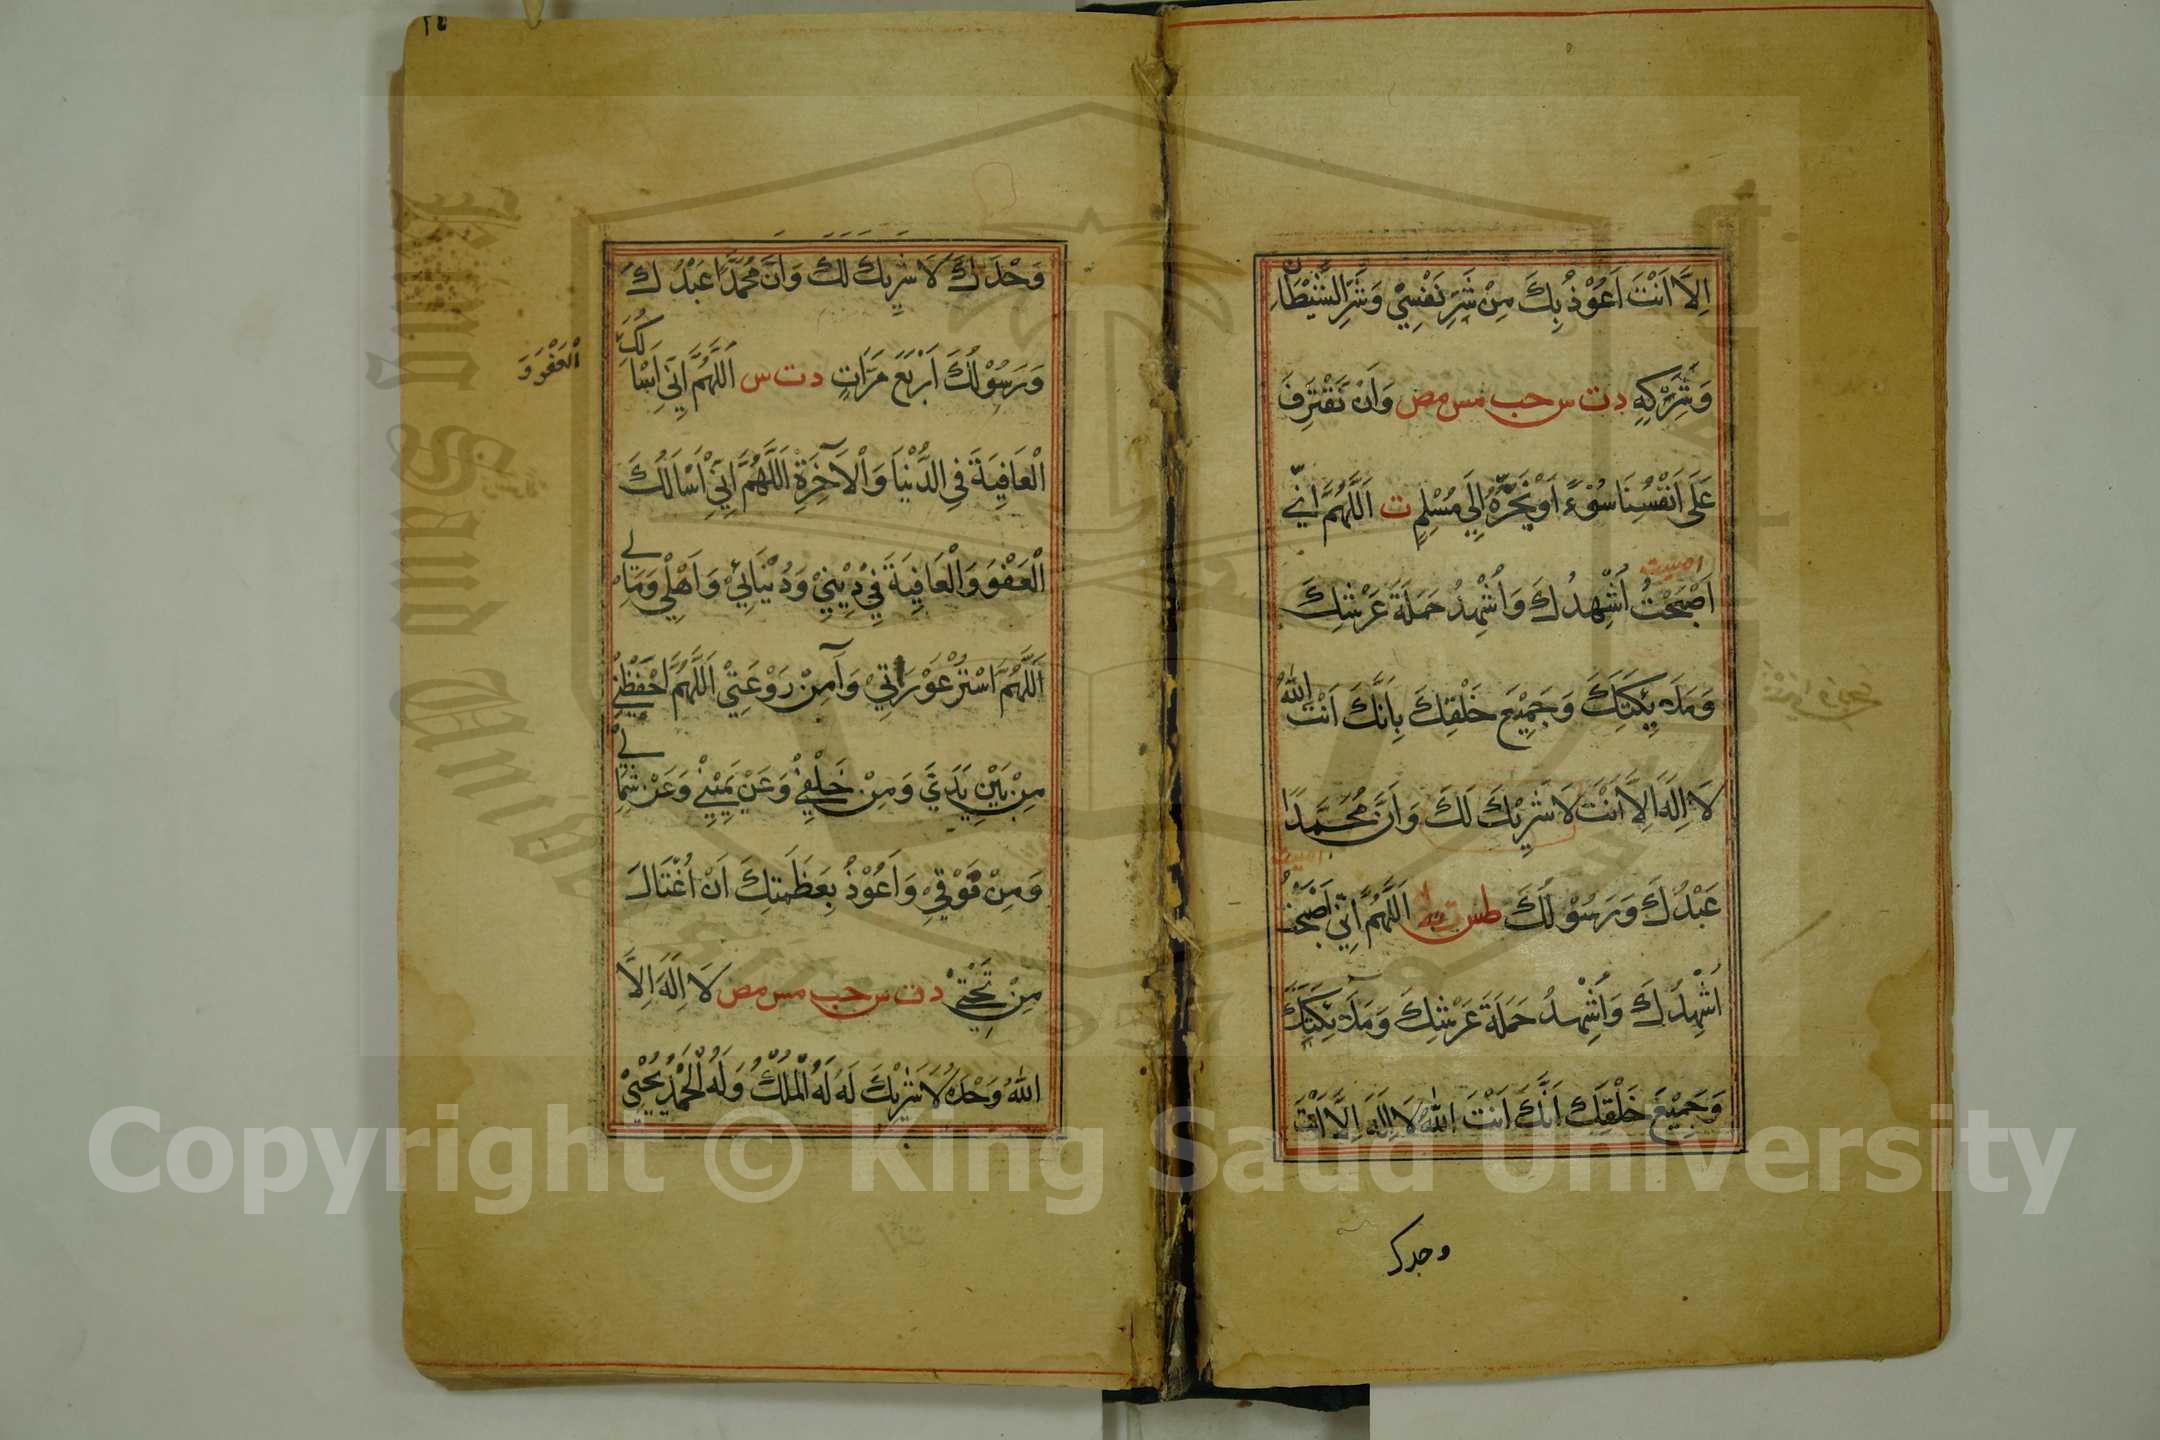 اِلَّا اَنْتَ اَعُوْذُ بِكَ مِنْ شَرِّ نَفْسِيْ وَشَرِّ الشَّيْطَانِ
وَشِرْكِهِ د ت س حب مس مص وَاَنْ نَقْتَرِفَ
عَلَى اَنْفُسِنَا سُوْءً اَوْ نَجُرَّهُ اِلَى مُسْلِمٍ ت اَللَّهُمَّ اِنِّي
امسيت
اَصْبَحْتُ اُشْهِدُكَ وَاُشْهِدُ حَمَلَةَ عَرْشِكَ
وَمَلَائِكَتَكَ وَجَمِيْعَ خَلْقِكَ بِاَنَّكَ اَنْتَ اللّٰهُ
لَا اِلٰهَ اِلَّا اَنْتَ لَا شَرِيْكَ لَكَ وَاَنَّ مُحَمَّدًا
امسيت
عَبْدُكَ وَرَسُوْلُكَ طس ت اَللَّهُمَّ اِنِّي اَصْبَحْتُ
اُشْهِدُكَ وَاُشْهِدُ حَمَلَةَ عَرْشِكَ وَمَلَائِكَتَكَ
وَجَمِيْعَ خَلْقِكَ اَنَّكَ اَنْتَ اللّٰهُ لَا اِلٰهَ اِلَّا اَنْتَ
وحدك
وَحْدَكَ لَا شَرِيْكَ لَكَ وَاَنَّ مُحَمَّدًا عَبْدُكَ
وَرَسُوْلُكَ اَرْبَعَ مَرَّاتٍ د ت س اَللَّهُمَّ اِنِّي اَسْاَلُكَ
الْعَفْوَ وَ
الْعَافِيَةَ فِي الدُّنْيَا وَالْآخِرَةِ اَللَّهُمَّ اِنِّي اَسْاَلُكَ
الْعَفْوَ وَالْعَافِيَةَ فِيْ دِيْنِيْ وَدُنْيَائِيْ وَاَهْلِيْ وَمَالِي
اَللَّهُمَّ اسْتُرْ عَوْرَاتِيْ وَآمِنْ رَوْعَتِيْ اَللَّهُمَّ احْفَظْنِيْ
مِنْ بَيْنِ يَدَيَّ وَمِنْ خَلْفِيْ وَعَنْ يَمِيْنِيْ وَعَنْ شِمَالِي
وَمِنْ فَوْقِيْ وَاَعُوْذُ بِعَظَمَتِكَ اَنْ اُغْتَالَ
مِنْ تَحْتِيْ د ق س حب مس مص لَا اِلٰهَ اِلَّا
اللّٰهُ وَحْدَهُ لَا شَرِيْكَ لَهُ لَهُ الْمُلْكُ وَلَهُ الْحَمْدُ يُحْيِيْ
Copyright © King Saud University
1957